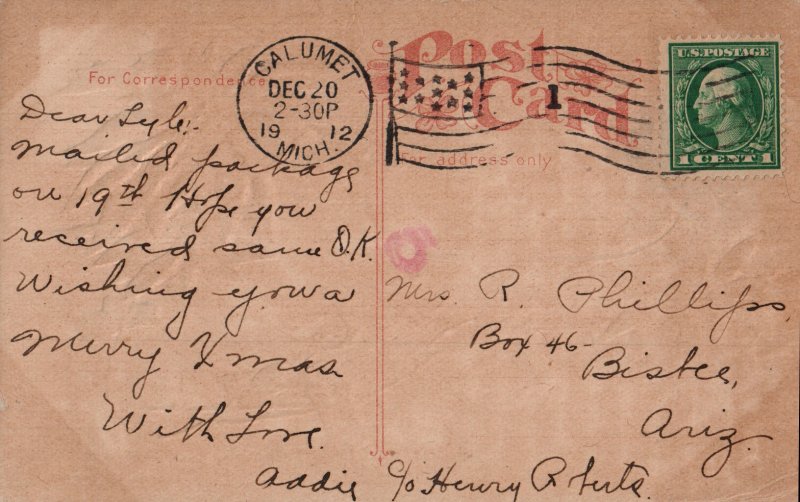 Post
Card
For Correspondence
For address only
CALUMET
DEC 20
2-30P
19 12
MICH.
1
U.S. POSTAGE
1 CENT 1
Dear Lyle:-
Mailed package
on 19th Hope you
received same O.K.
Wishing you a
Merry Xmas
With Love.
Addie c/o Henry Roberts.
Mrs. R. Phillips,
Box 46-
Bisbee,
Ariz.